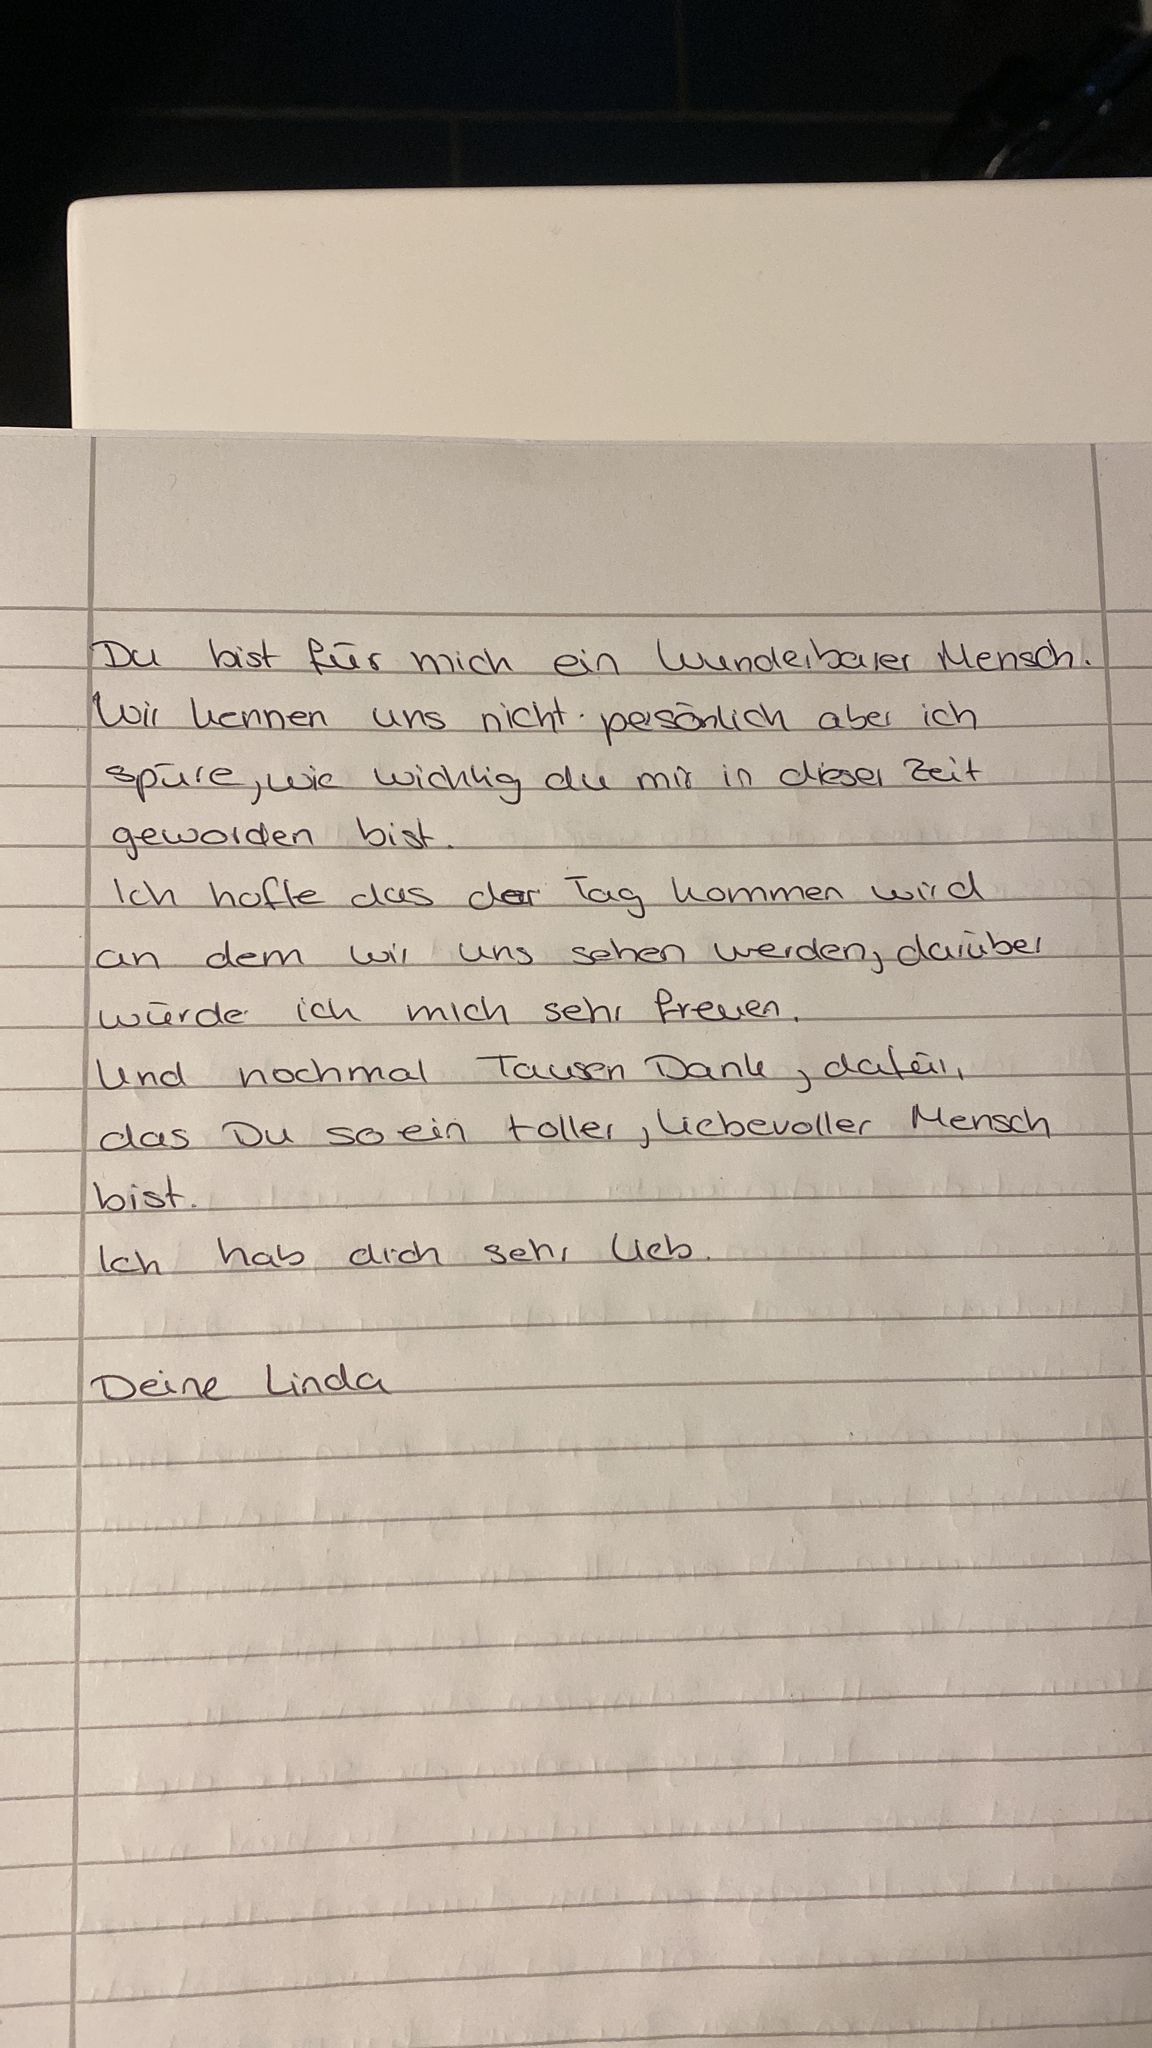 Du bist für mich ein Wunderbarer Mensch.
Wir kennen uns nicht persönlich aber ich
spüre, wie wichtig du mir in dieser Zeit
geworden bist.
Ich hoffe das der Tag kommen wird
an dem wir uns sehen werden, darüber
würde ich mich sehr freuen.
Und nochmal Tausen Dank, dafür,
das Du so ein toller, liebevoller Mensch
bist.
Ich hab dich sehr lieb.
Deine Linda